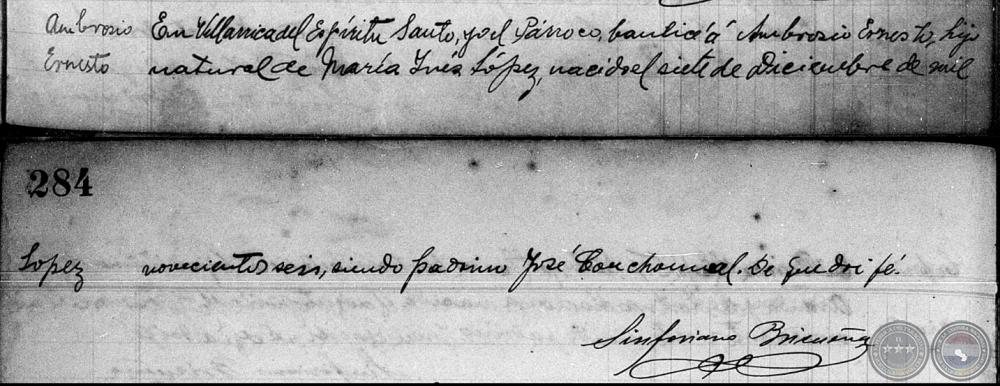 Ambrosio
Ernesto
En Villarrica del Espíritu Santo, yo el Párroco, bauticé á Ambrosio Ernesto, hijo
natural de María Inés López, nacido el siete de Diciembre de mil
284
Lopez
novecientos seis, siendo padrino José. De que doi fé.
Sinforiano